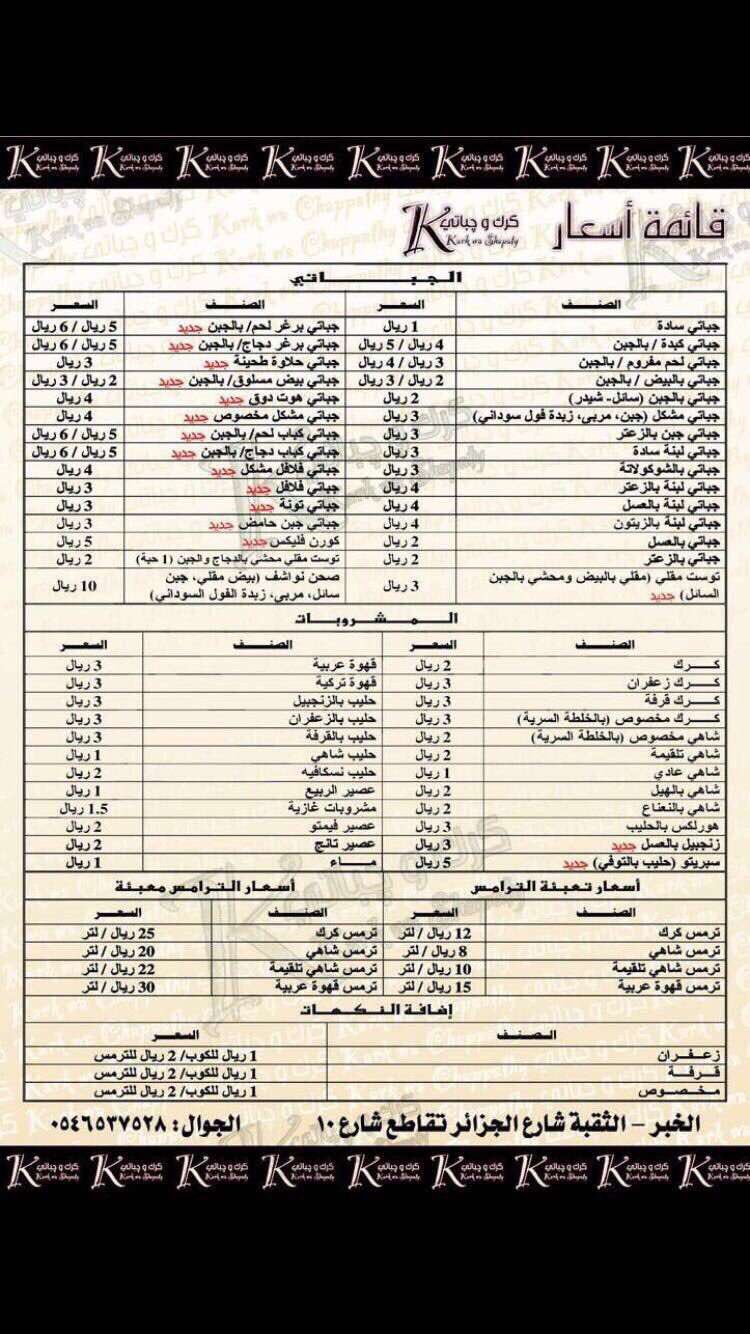 كرك و چباتي Kark wa Shapaty
قائمة أسعار كرك و چباتي
Kark wa Shapaty
الـجـبـــاتي
الصنف السعر الصنف السعر
جباتي سادة 1 ريال جباتي برغر لحم/ بالجبن جديد 5 ريال / 6 ريال
جباتي كبدة / بالجبن 4 ريال / 5 ريال جباتي برغر دجاج/ بالجبن جديد 5 ريال / 6 ريال
جباتي لحم مفروم / بالجبن 3 ريال / 4 ريال جباتي حلاوة طحينة جديد 3 ريال
جباتي بالبيض / بالجبن 2 ريال / 3 ريال جباتي بيض مسلوق/ بالجبن جديد 2 ريال / 3 ريال
جباتي بالجبن (سائل- شيدر) 2 ريال جباتي هوت دوق جديد 4 ريال
جباتي مشكل (جبن، مربى، زبدة فول سوداني) 3 ريال جباتي مشكل مخصوص جديد 4 ريال
جباتي جبن بالزعتر 3 ريال جباتي كباب لحم/ بالجبن جديد 5 ريال / 6 ريال
جباتي لبنة سادة 3 ريال جباتي كباب دجاج/ بالجبن جديد 5 ريال / 6 ريال
جباتي بالشوكولاتة 3 ريال جباتي فلافل مشكل جديد 4 ريال
جباتي لبنة بالزعتر 4 ريال جباتي فلافل جديد 3 ريال
جباتي لبنة بالعسل 4 ريال جباتي تونة جديد 3 ريال
جباتي لبنة بالزيتون 4 ريال جباتي جبن حامض جديد 3 ريال
جباتي بالعسل 2 ريال كورن فليكس جديد 5 ريال
جباتي بالزعتر 2 ريال توست مقلي محشي بالدجاج والجبن (1 حبة) 2 ريال
توست مقلي (مقلي بالبيض ومحشي بالجبن السائل) جديد 3 ريال صحن نواشف (بيض مقلي، جبن سائل، مربى، زبدة الفول السوداني) 10 ريال
الـمـشـروبـات
الصنف السعر الصنف السعر
كــــرك 2 ريال قهوة عربية 3 ريال
كــــرك زعفران 3 ريال قهوة تركية 3 ريال
كــــرك قرفة 3 ريال حليب بالزنجبيل 3 ريال
كــــرك مخصوص (بالخلطة السرية) 3 ريال حليب بالزعفران 3 ريال
شاهي مخصوص (بالخلطة السرية) 2 ريال حليب بالقرفة 3 ريال
شاهي تلقيمة 2 ريال حليب شاهي 1 ريال
شاهي عادي 1 ريال حليب نسكافيه 2 ريال
شاهي بالهيل 2 ريال عصير الربيع 1 ريال
شاهي بالنعناع 2 ريال مشروبات غازية 1.5 ريال
هورلكس بالحليب 3 ريال عصير فيمتو 2 ريال
زنجبيل بالعسل جديد 3 ريال عصير تانج 2 ريال
سبريتو (حليب بالتوفي) جديد 5 ريال مـــاء 1 ريال
أسعار تعبئة الترامس أسعار الترامس معبئة
الصنف السعر الصنف السعر
ترمس كرك 12 ريال / لتر ترمس كرك 25 ريال / لتر
ترمس شاهي 8 ريال / لتر ترمس شاهي 20 ريال / لتر
ترمس شاهي تلقيمة 10 ريال / لتر ترمس شاهي تلقيمة 22 ريال / لتر
ترمس قهوة عربية 15 ريال / لتر ترمس قهوة عربية 30 ريال / لتر
إضافة النكهات
الصنف السعر
زعـفـران 1 ريال للكوب/ 2 ريال للترمس
قـرفـة 1 ريال للكوب/ 2 ريال للترمس
مـخـصـوص 1 ريال للكوب/ 2 ريال للترمس
الخبر – الثقبة شارع الجزائر تقاطع شارع ١٠ الجوال: ٠٥٤٦٥٣٧٥٢٨
كرك و چباتي Kark wa Shapaty